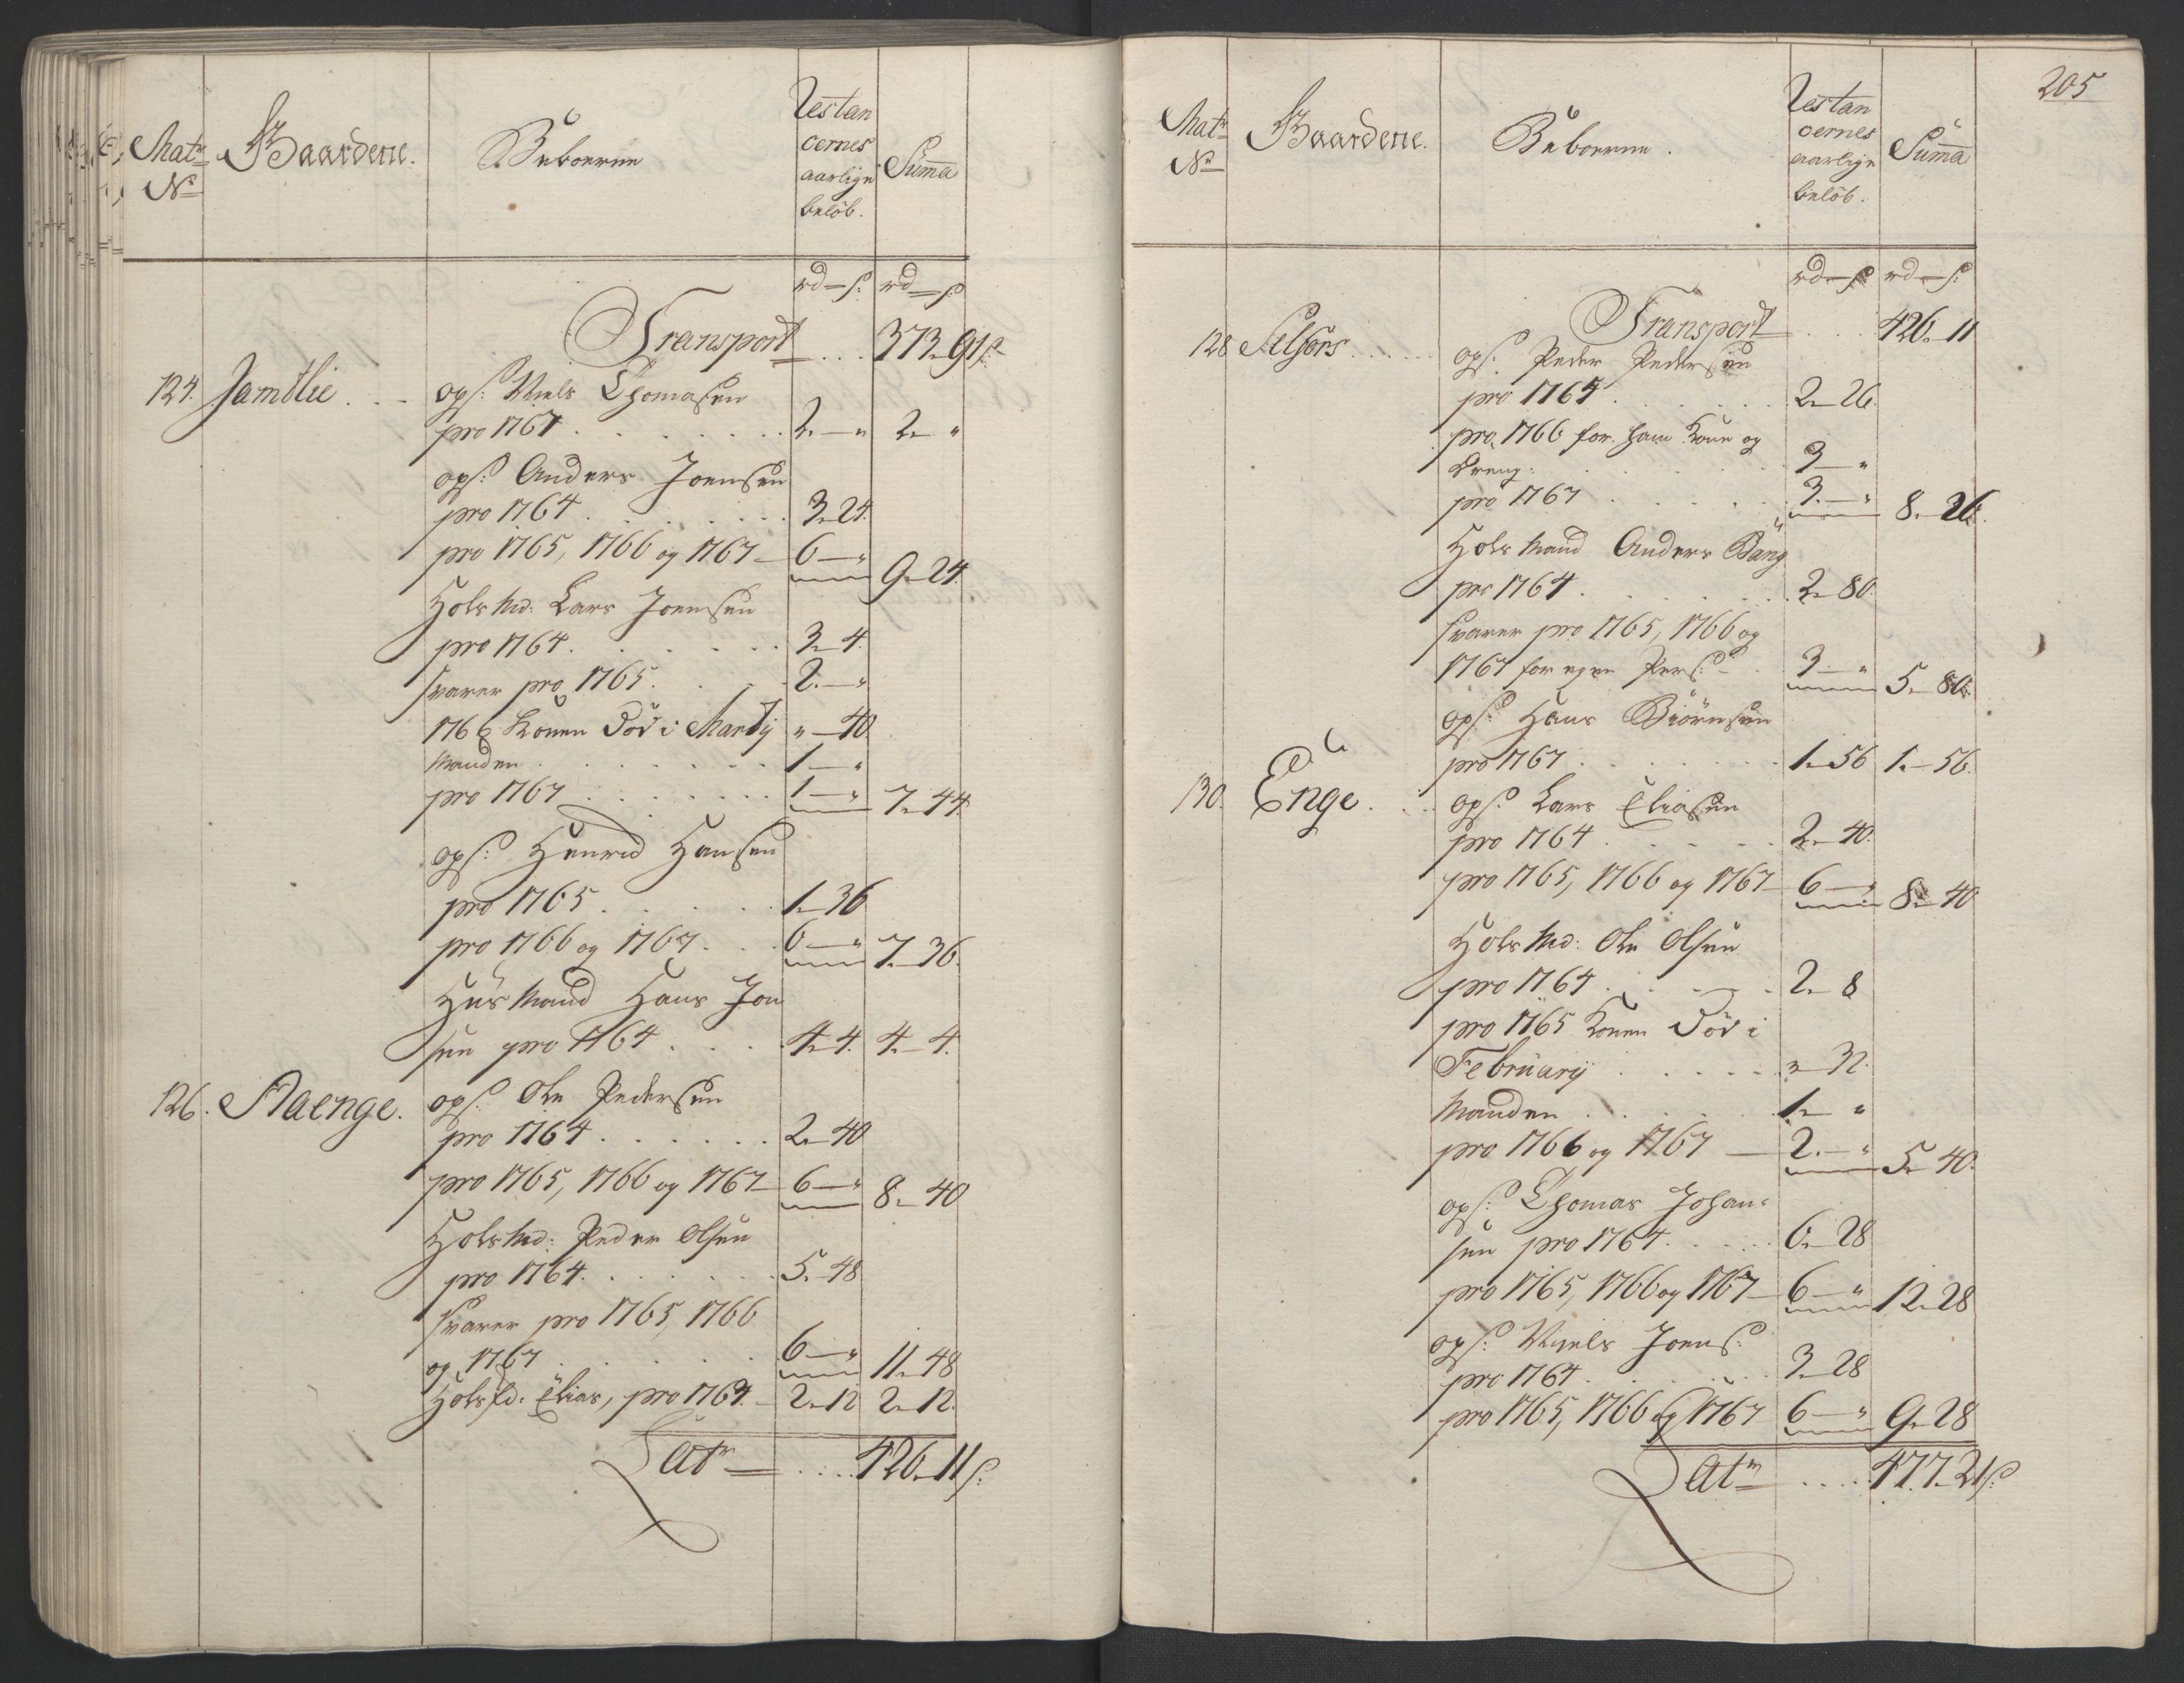 Matr
No
Gaardene.
Beboerne
Restan
cernes
aarlige
beløb.
Summa
rd — s: rd — s
Transport ... 373 - 91 s
124. Jamtlie . - ops: Niels Thomasen
pro 1767 . . . . . . . 2. — " 2 "
ops: Anders Joensen
pro 1764 . . . . . . 3 - 24.
pro 1765, 1766 og 1767 — 6 — " 9 - 24.
Holds Md: Lars Joensen
pro 1764 . . . . . . 3 - 4.
svarer pro 1765 . . . 2. — "
1766 Konen död i Martij " — 40
Manden . . . . . . . 1 — "
pro 1767 . . . . . . 1 — " 7 - 44.
ops: Henric Hansen
pro 1765 . . . . . . 1 - 36
pro 1766 og 1767 . . 6 — " 7 - 36.
Huus Mand Hans Jon
sen pro 1764 . . . . 4 - 4. 4. - 4.
126. Naenge. ops: Ole Pedersen
pro 1764 . . . . . . 2 - 40
pro 1765, 1766 og 1767 — 6 — " 8 - 40
Holds Md: Peder Olsen
pro 1764 . . . . . . 5 - 48
svarer pro 1765, 1766
og 1767 . . . . . . 6 — " 11 - 48
Holds Kd: Elias, pro 1764. — 2 - 12 2 - 12.
Latr — . . . . 426 - 11 s:
205
Matr
No
Gaardene.
Beboerne.
Restan
cernes
aarlige
beløb.
Summa
rd — s rd — s:
Transport . . . 426 - 11
128 Selfors . . . . ops: Peder Pedersen
pro 1765 . . . . . . 2 - 26.
pro 1766 for ham Kone og
Dreng: . . . . . . 3 — "
pro 1767 . . . . . 3. — " 8. - 26.
Holds Mand Anders Bang
pro 1764 . . . . . . 2 - 80.
svarer pro 1765, 1766 og
1767 for egen Pers: — . 3 — " 5 - 80
ops: Hans Biörnsen
pro 1767 . . . . . . 1 - 56 1. - 56.
130. Enge . . . ops: Lars Eliasen
pro 1764 . . . . . . 2 - 40.
pro 1765, 1766 og 1767 — 6 — " 8 - 40
Holds Md: Ole Olsen
pro 1764 . . . . . . 2 - 8
pro 1765 Konen död i
Februarij . . . . . " - 32.
Manden . . . . . . 1. — "
pro 1766 og 1767 — 2. — " 5 - 40.
ops: Thomas Johan-
sen pro 1764 . . . . 6 - 28
pro 1765, 1766 og 1767 — 6 — " 12 - 28
ops: Niels Joens:
pro 1764 . . . . . . 3 - 28
pro 1765, 1766 og 1767 6 — " 9 - 28
Latr — . . . . 477 - 21 s: